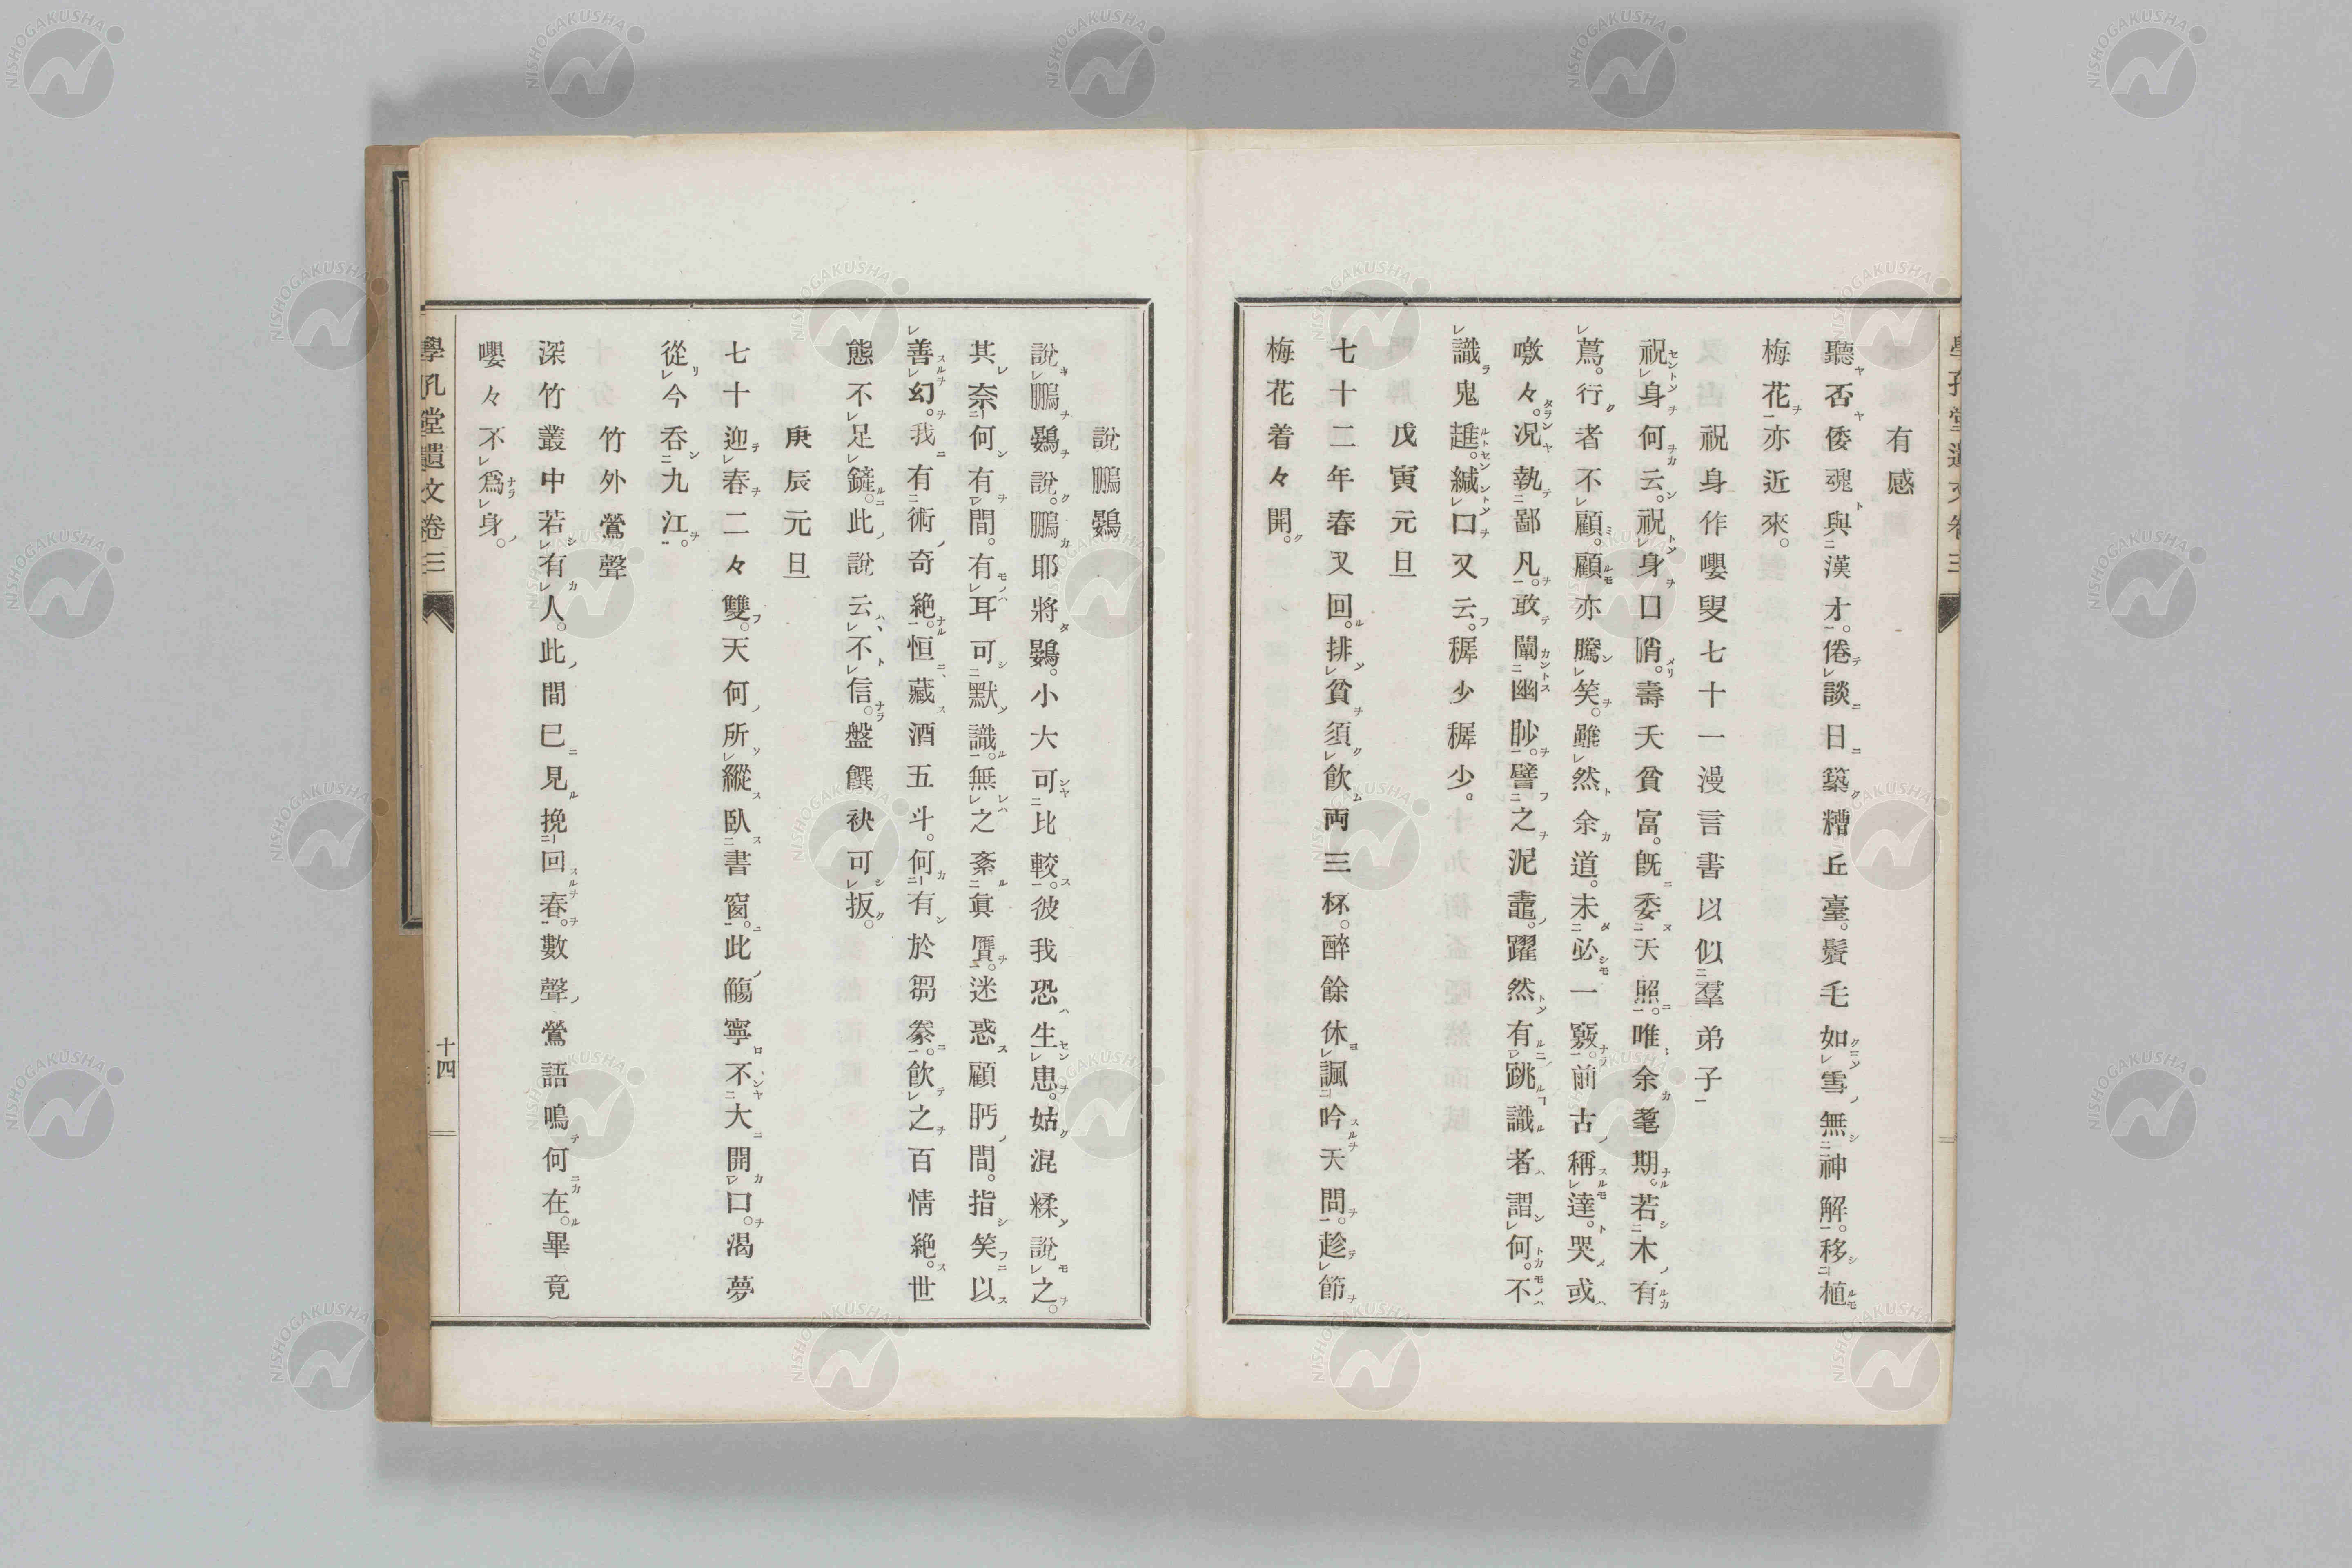 有感
聽否倭魂與漢才。倦談日築糟丘臺。鬢毛如雪無神解。移植
梅花亦近來。
祝身作嚶叟七十一漫言書以似羣弟子
祝身何云。祝身口哨。壽夭貧富。旣委天照。唯余耄期。若木有
蔦。行者不顧。顧亦騰笑。雖然余道。未必一竅。前古稱達。哭或
噭々。況執鄙凡。敢闡幽眇。譬之泥鼃。躍然有跳識者謂何。不
識鬼趡。緘口又云。穉少穉少。
戊寅元旦
七十二年春又回。排貧須飮両三杯。醉餘休諷吟天問。趁節
梅花着々開。
說鵬鷃
說鵬鷃說。鵬耶將鷃。小大可比較。彼我恐生患。姑混糅說之。
其奈何有間。有耳可默識。無之紊眞贋。迷惑顧眄間。指笑以
善幻。我有術奇絶。恒藏酒五斗。何有於芻豢。飮之百情絶。世
態不足鏟。此說云不信。盤饌袂可扳。
庚辰元旦
七十迎春二々雙。天何所縱臥書窗。此觴寧不大開口。渴夢
從今呑九江。
竹外鶯聲
深竹叢中若有人。此間已見挽回春。數聲鶯語鳴何在。畢竟
嚶々不爲身。
學孔堂遺文卷三
十四